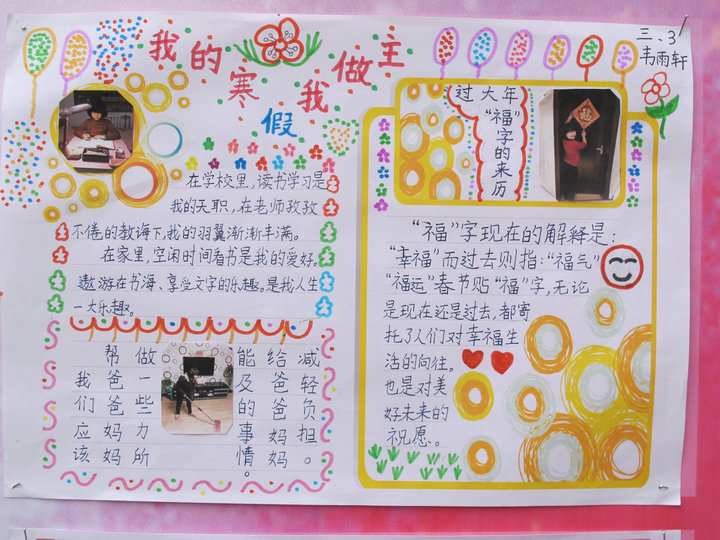 我的寒假我做主
三、3
韦雨轩
在学校里,读书学习是
我的天职,在老师孜孜
不倦的教诲下,我的羽翼渐渐丰满。
在家里,空闲时间看书是我的爱好。
遨游在书海、享受文字的乐趣。是我人生
一大乐趣。
我们应该
帮爸爸妈妈
做一些力所
能及的事情。
给爸爸妈妈
减轻负担。
过大年
“福”字的来历
“福”字现在的解释是:
“幸福”而过去则指:“福气”
“福运”春节贴“福”字,无论
是现在还是过去,都寄
托了人们对幸福生
活的向往。
也是对美
好未来的
祝愿。